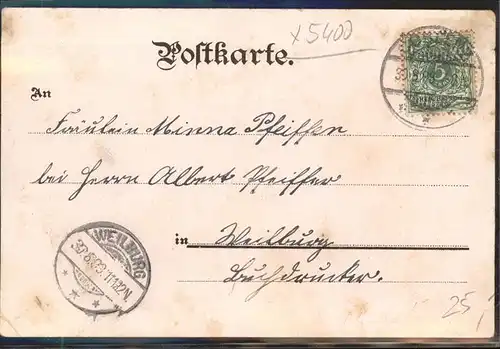 x5400
Postkarte.
An
Fräulein Minna Pfeiffer
bei Herrn Albert Pfeiffer
in Weilburg
Buchdrucker.
WEILBURG
30.6.99. 11-12N
5
25,-